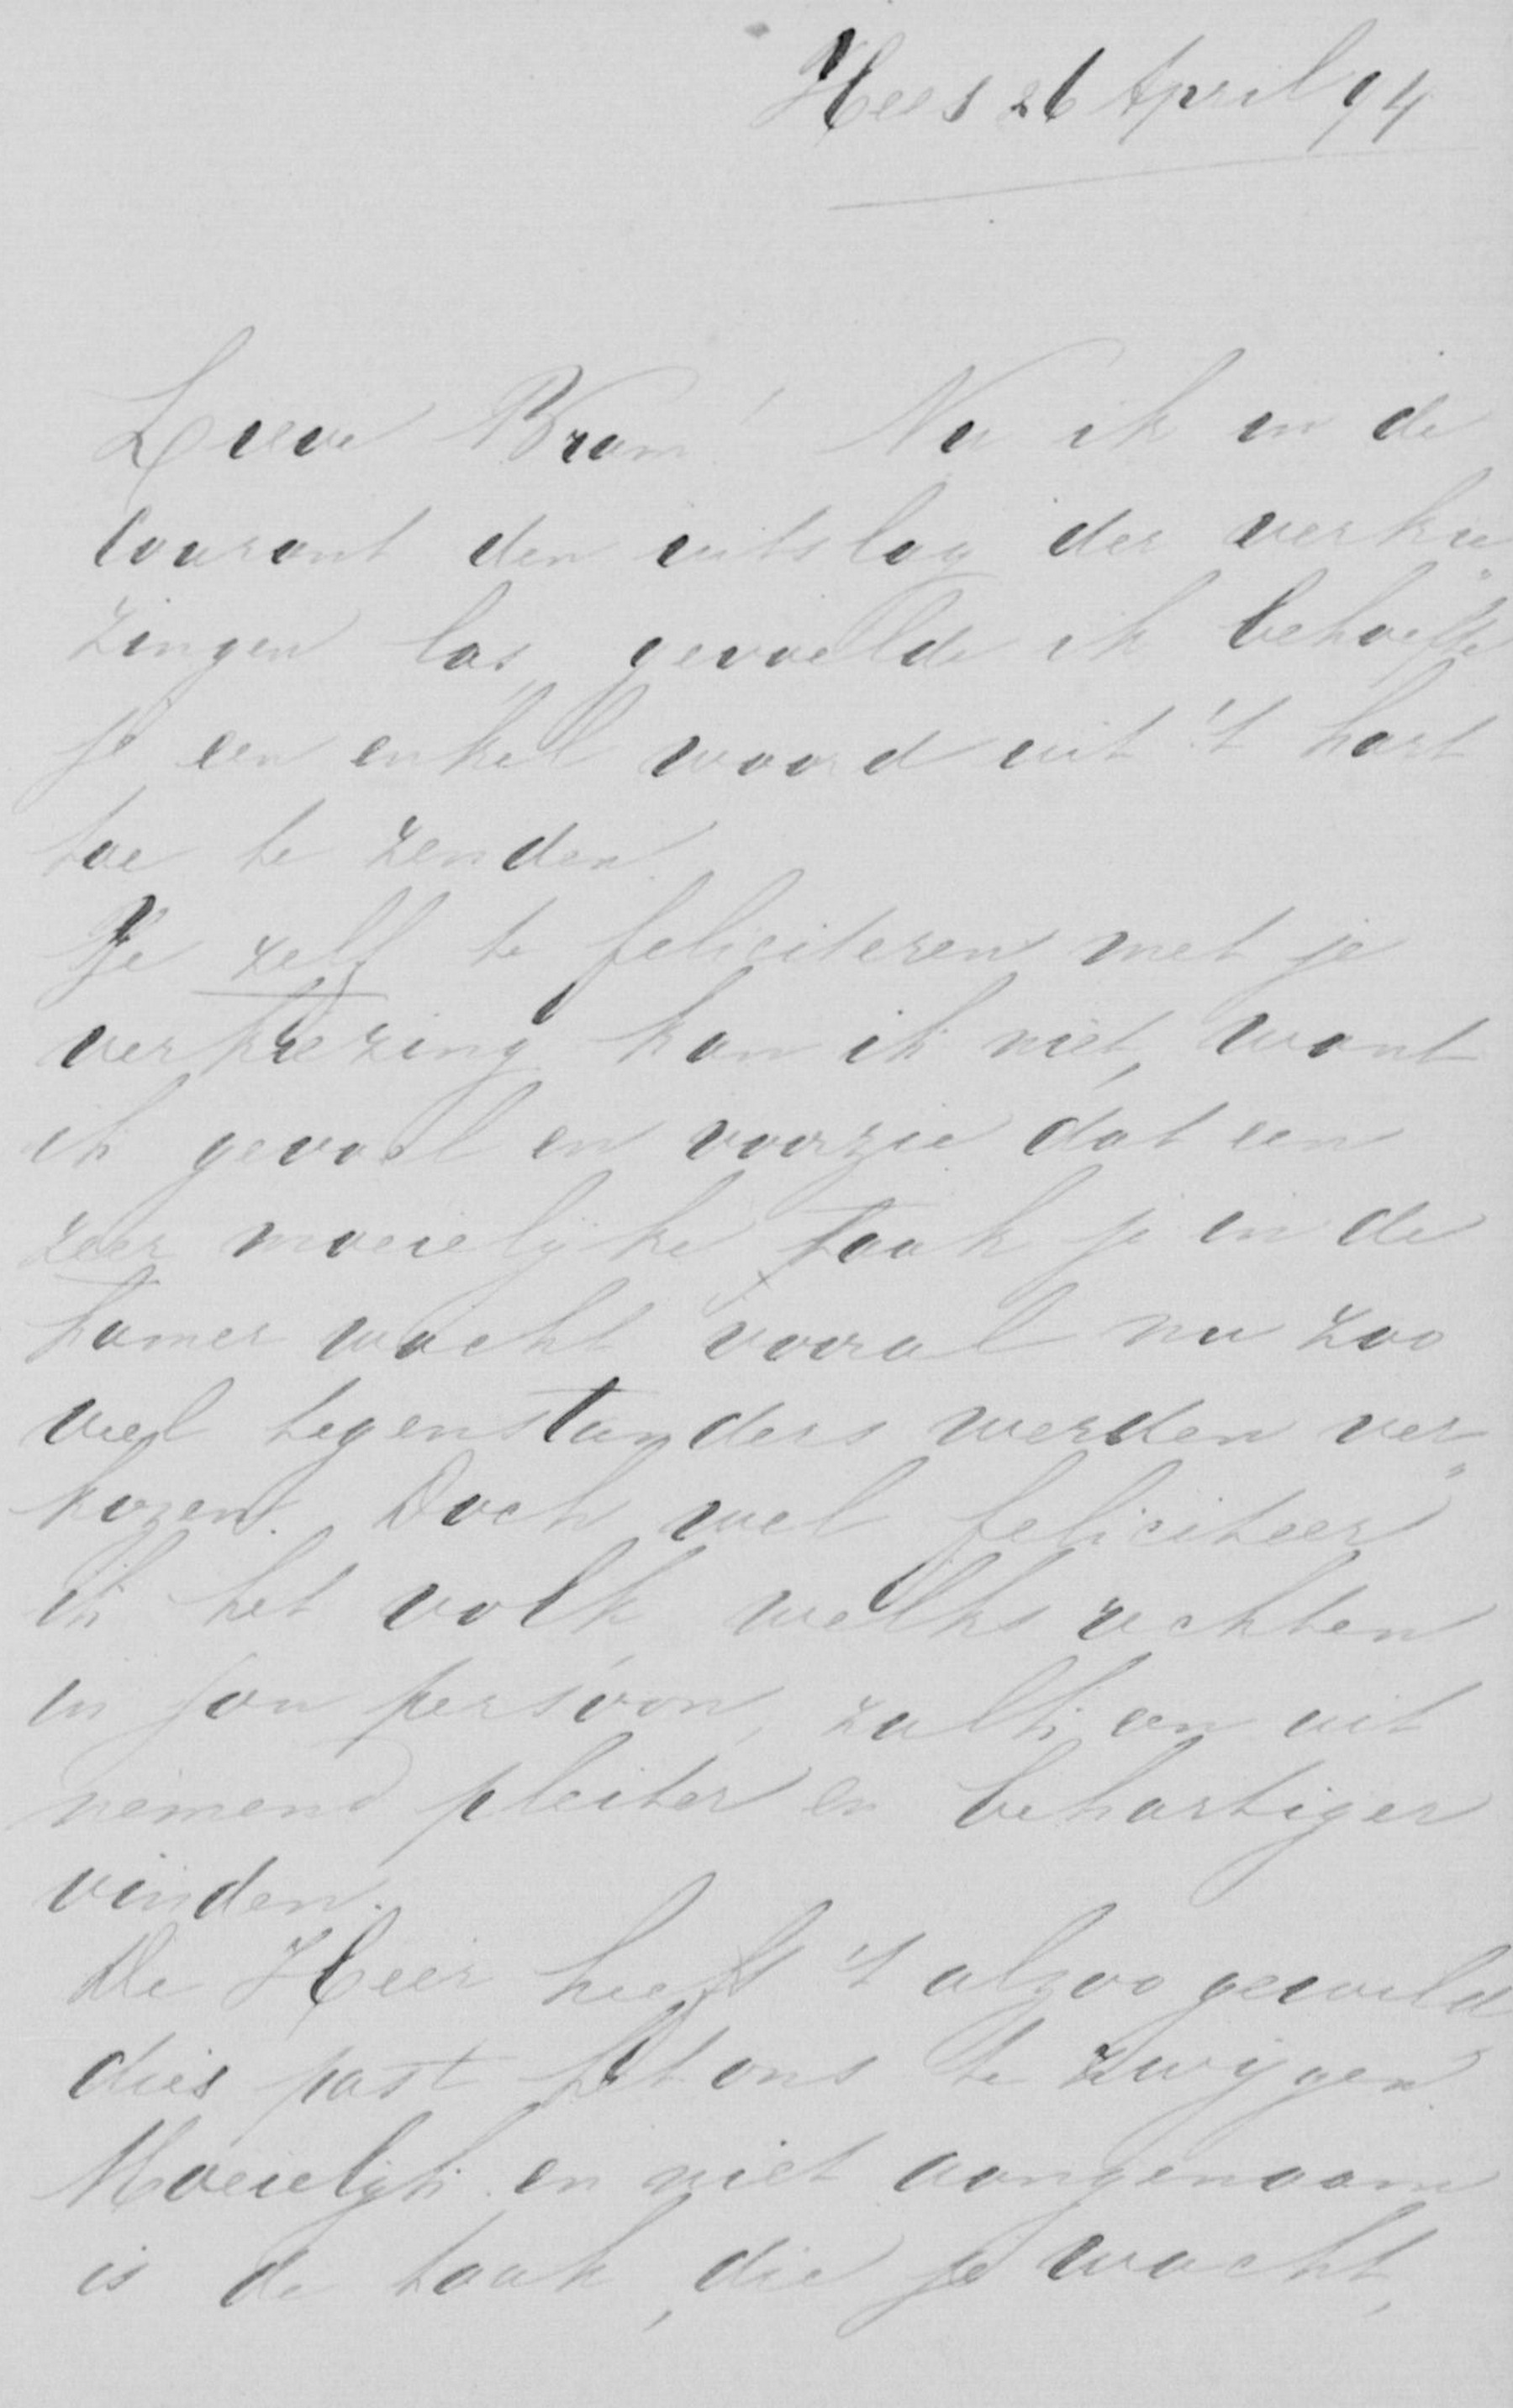 Hees 26 April 94
Lieve Bram! Nu ik in de
Courant den uitslag der verkie„
zingen las, gevoelde ik behoefte
je een enkel woord uit 't hart
toe te zenden.
Je zelf te feliciteren met je
verkiezing kan ik niet, want
ik gevoel en voorzie dat een
zeer moeielijke taak je in de
kamer wacht vooral nu zoo
veel tegenstanders werden ver„
kozen. Doch wel feliciteer
ik het volk welks rechten
in jou persoon, zulk een uit
nemend pleiter en behartiger
vinden.
De Heer heeft 't alzoo gewild
dies past het ons te zwijgen.
Moeielijk en niet aangenaam
is de taak, die je wacht,